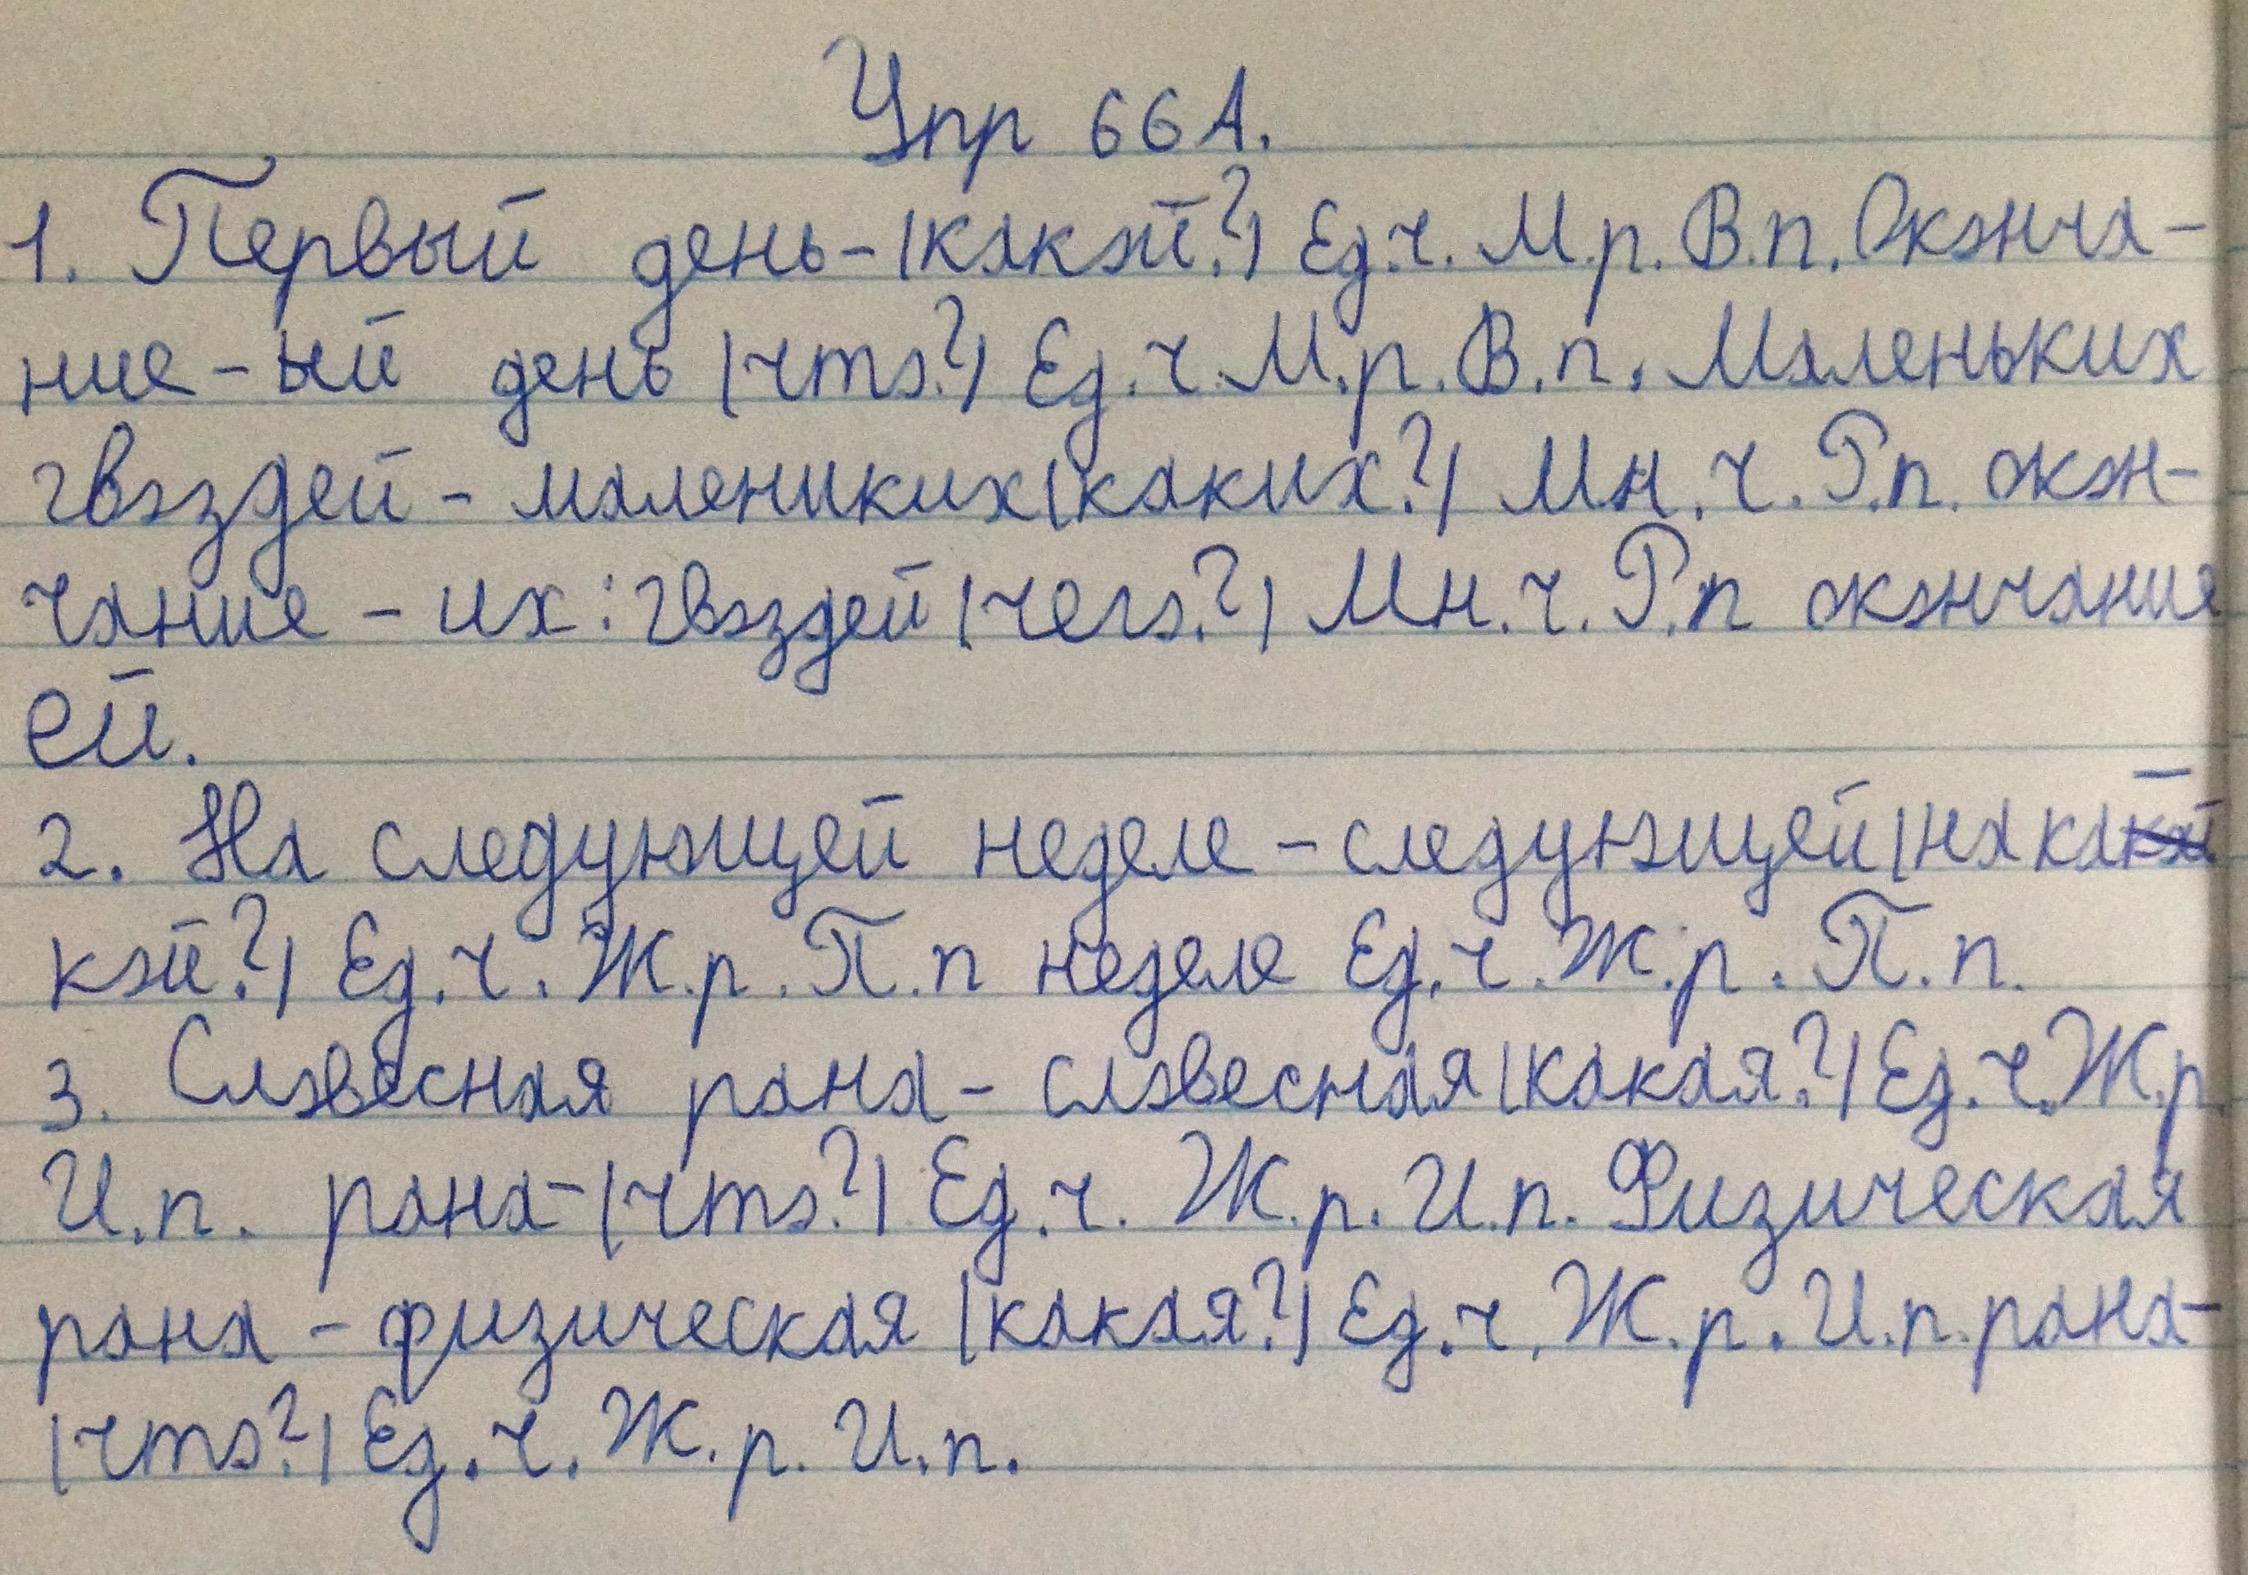 Упр 66 А.
1. Первый день - (какой?) Ед.ч. М.р. В.п. Оконча-
ние - ый день (что?) Ед.ч. М.р. В.п. Маленьких
гвоздей - малениких (каких?) Мн.ч. Р.п. окон-
чание - их: гвоздей (чего?) Мн.ч. Р.п окончание
ей.
2. На следующей неделе - следующей (на ка
кой?) Ед.ч. Ж.р. П.п неделе Ед.ч. Ж.р. П.п.
3. Словесная рана - словесная (какая?) Ед.ч. Ж.р
И.п. рана - (что?) Ед.ч. Ж.р. И.п. Физическая
рана - физическая (какая?) Ед.ч. Ж.р. И.п. рана -
(что?) Ед.ч. Ж.р. И.п.